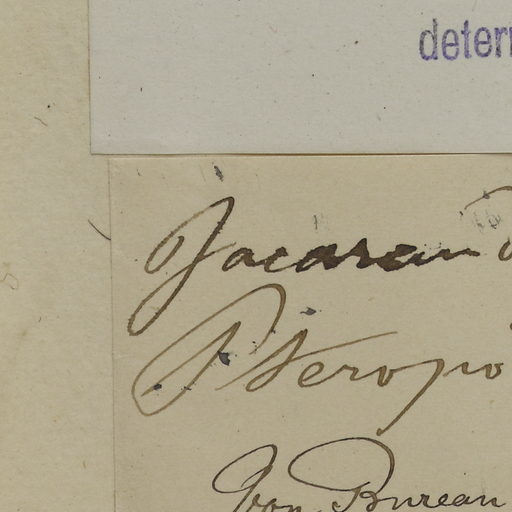 deter
Jacaran
Pteropo
Von Bureau